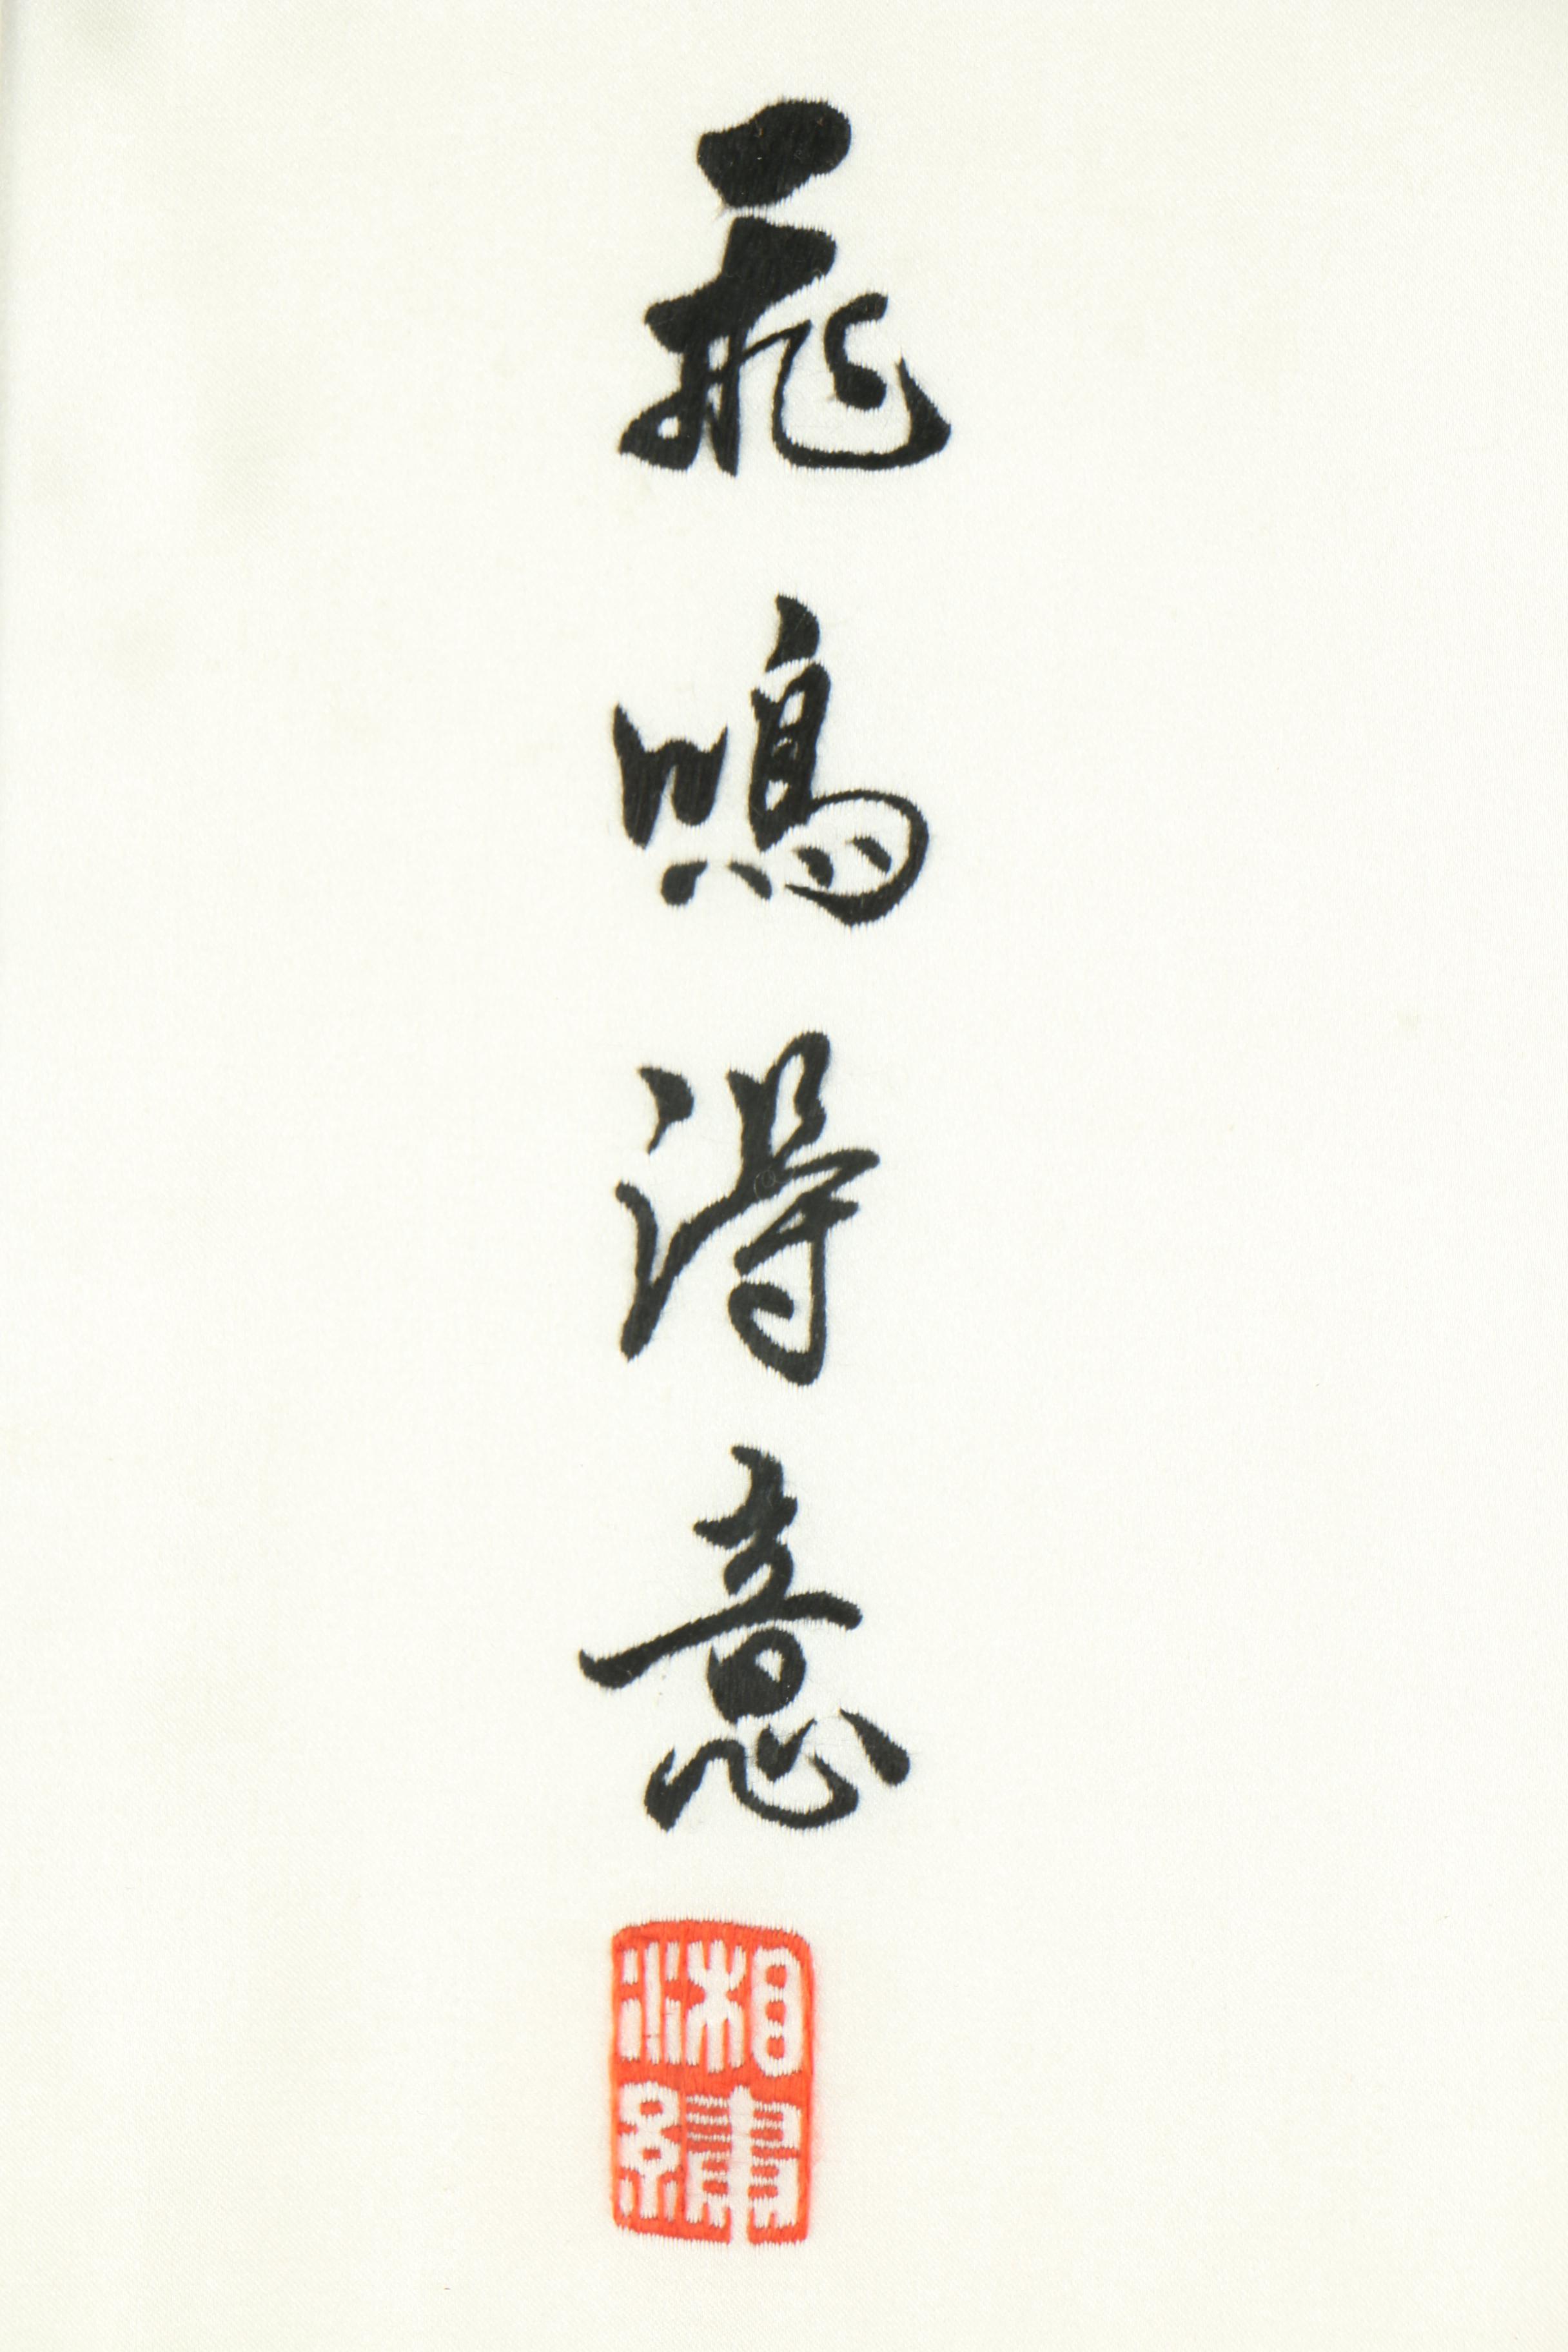 飛鳴得意
湘繡